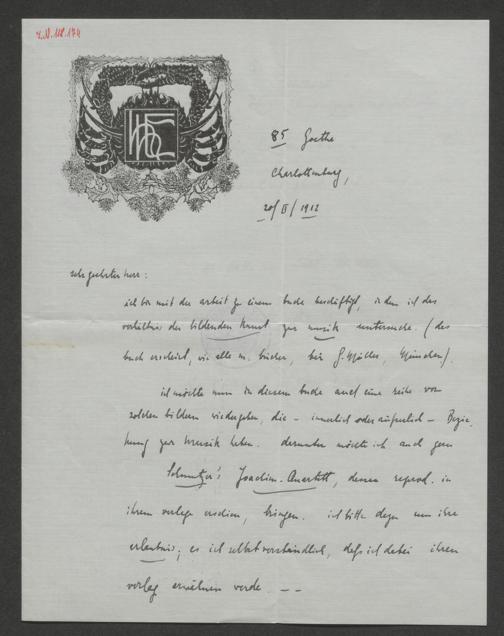 I.N. 118.174
85 Goethe
Charlottenburg,
20/II/1912
sehr geehrter herr:
ich bin mit der arbeit zu einem buche beschäftigt, in dem ich das
verhältnis der bildenden kunst zur musik untersuche. (das
buch erscheint, wie alle m. bücher, bei G. Müller, München).
ich möchte nun in diesem buche auch eine reihe von
solchen bildern wiedergeben, die – innerlich oder äusserlich – Bezie-
hung zur musik haben. darunter möchte ich auch gern
Schmutzer's Joachim-Quartett, dessen reprod. in
ihrem verlage erschien, bringen. ich bitte um ihre
erlaubnis; es ist selbstverständlich, dass ich dabei ihren
verlag erwähnen werde. – –